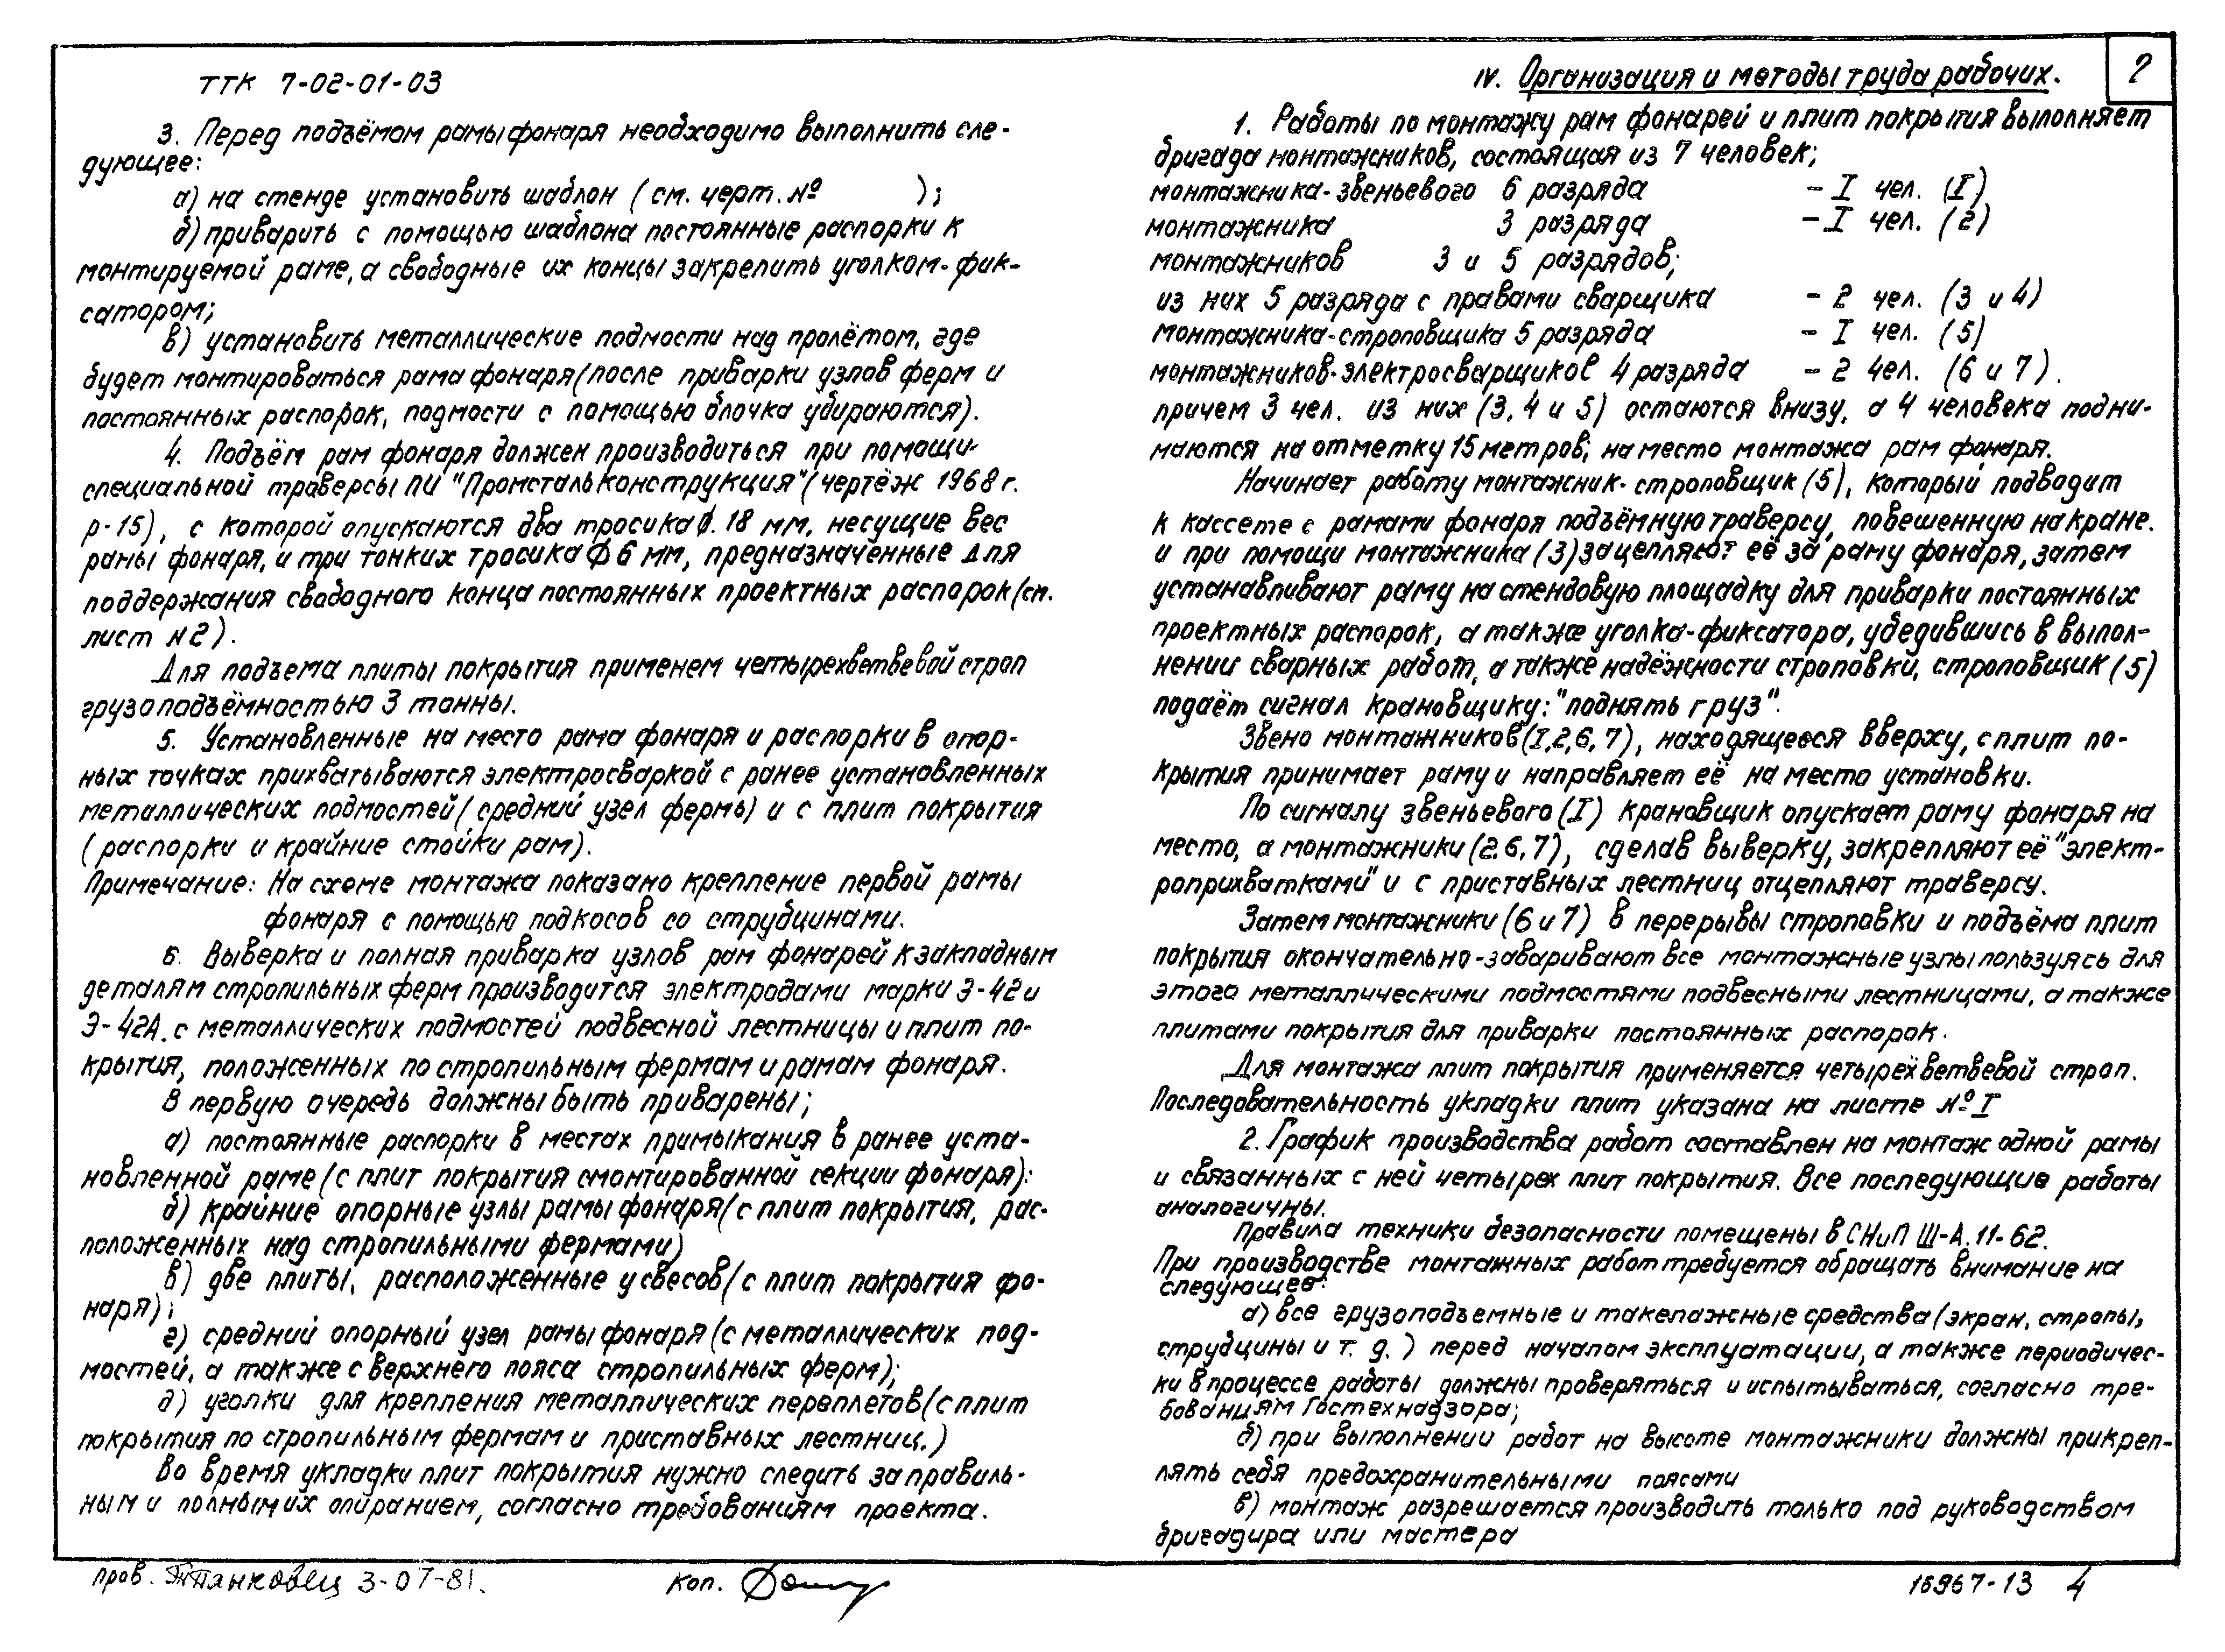 ТТК 7-02-01-03
3. Перед подъёмом рамы фонаря необходимо выполнить сле-
дующее:
а) на стенде установить шаблон (см. черт. № );
б) приварить с помощью шаблона постоянные распорки к
монтируемой раме, а свободные их концы закрепить уголком-фик-
сатором;
в) установить металлические подмости над пролётом, где
будет монтироваться рама фонаря (после приварки узлов ферм и
постоянных распорок, подмости с помощью блочка убираются).
4. Подъём рам фонаря должен производиться при помощи
специальной траверсы ПИ "Промстальконструкция" (чертёж 1968 г.
р-15), с которой опускаются два тросика ф. 18 мм, несущие вес
рамы фонаря, и три тонких тросика ф 6 мм, предназначенные для
поддержания свободного конца постоянных проектных распорок (см.
лист № 2).
Для подъема плиты покрытия применем четырехветвевой строп
грузоподъёмностью 3 тонны.
5. Установленные на место рама фонаря и распорки в опор-
ных точках прихватываются электросваркой с ранее установленных
металлических подмостей (средний узел фермы) и с плит покрытия
(распорки и крайние стойки рам).
Примечание: На схеме монтажа показано крепление первой рамы
фонаря с помощью подкосов со струбцинами.
6. Выверка и полная приварка узлов рам фонарей к закладным
деталям стропильных ферм производится электродами марки Э-42 и
Э-42А. с металлических подмостей подвесной лестницы и плит по-
крытия, положенных по стропильным фермам и рамам фонаря.
В первую очередь должны быть приварены;
а) постоянные распорки в местах примыкания в ранее уста-
новленной раме (с плит покрытия смонтированной секции фонаря):
б) крайние опорные узлы рамы фонаря (с плит покрытия, рас-
положенных над стропильными фермами)
в) две плиты, расположенные у свесов (с плит покрытия фо-
наря);
г) средний опорный узел рамы фонаря (с металлических под-
мостей, а также с верхнего пояса стропильных ферм);
д) уголки для крепления металлических переплетов (с плит
покрытия по стропильным фермам и приставных лестниц.)
Во время укладки плит покрытия нужно следить за правиль-
ным и полным их опиранием, согласно требованиям проекта.
2
IV. Организация и методы труда рабочих.
1. Работы по монтажу рам фонарей и плит покрытия выполняет
бригада монтажников, состоящая из 7 человек;
монтажника-звеньевого 6 разряда - I чел. (I)
монтажника 3 разряда - I чел. (2)
монтажников 3 и 5 разрядов;
из них 5 разряда с правами сварщика - 2 чел. (3 и 4)
монтажника-строповщика 5 разряда - I чел. (5)
монтажников-электросварщиков 4 разряда - 2 чел. (6 и 7).
причем 3 чел. из них (3, 4 и 5) остаются внизу, а 4 человека подни-
маются на отметку 15 метров; на место монтажа рам фонаря.
Начинает работу монтажник-строповщик (5), который подводит
к кассете с рамами фонаря подъёмную траверсу, повешенную на кране.
и при помощи монтажника (3) зацепляют её за раму фонаря, затем
устанавливают раму на стендовую площадку для приварки постоянных
проектных распорок, а также уголка-фиксатора, убедившись в выпол-
нении сварных работ, а также надёжности строповки, строповщик (5)
подаёт сигнал крановщику: "поднять груз".
Звено монтажников (I,2,6,7), находящееся вверху, с плит по-
крытия принимает раму и направляет её на место установки.
По сигналу звеньевого (I) крановщик опускает раму фонаря на
место, а монтажники (2.6,7), сделав выверку, закрепляют её "элект-
роприхватками" и с приставных лестниц отцепляют траверсу.
Затем монтажники (6 и 7) в перерывы строповки и подъёма плит
покрытия окончательно-заваривают все монтажные узлы пользуясь для
этого металлическими подмостями подвесными лестницами, а также
плитами покрытия для приварки постоянных распорок.
Для монтажа плит покрытия применяется четырёхветвевой строп.
Последовательность укладки плит указана на листе № I
2. График производства работ составлен на монтаж одной рамы
и связанных с ней четырех плит покрытия. Все последующие работы
аналогичны.
Правила техники безопасности помещены в СНиП Ш-А.11-62.
При производстве монтажных работ требуется обращать внимание на
следующее:
а) все грузоподъемные и такелажные средства (экран, стропы,
струбцины и т. д.) перед началом эксплуатации, а также периодичес-
ки в процессе работы должны проверяться и испытываться, согласно тре-
бованиям Гостехнадзора;
б) при выполнении работ на высоте монтажники должны прикреп-
лять себя предохранительными поясами
в) монтаж разрешается производить только под руководством
бригадира или мастера
пров. 3-07-81. Коп. 15967-13 4